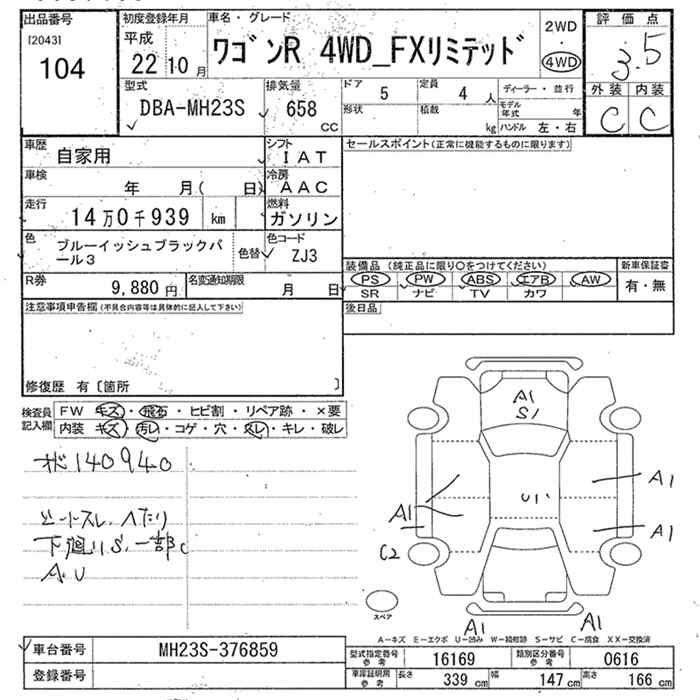 出品番号
[2043]
104
初度登録年月
平成
22 10月
車名・グレード
ワゴンR 4WD_FXリミテッド
2WD
・
4WD
評価点
3.5
外装 内装
C C
型式
DBA-MH23S
排気量
658
cc
ドア
5
定員
4 人
形状
積載
kg
ディーラー・並行
モデル年式 年
ハンドル 左・右
車歴
自家用
シフト
IAT
車検
年 月( 日)
冷房
AAC
走行
14万0千939 km
燃料
ガソリン
色
ブルーイッシュブラックパール3
色替
色コード
ZJ3
R券
9,880円
名変通知期限
月 日
セールスポイント(正常に機能するものに限ります)
装備品 (純正品に限り○をつけてください)
PS PW ABS エアB AW
SR ナビ TV カワ
新車保証書
有・無
後日品
注意事項申告欄(不具合内容等は具体的に記入して下さい)
修復歴 有〔箇所 〕
検査員記入欄
FW キズ・飛石・ヒビ割・リペア跡・×要
内装 キズ・汚レ・コゲ・穴・スレ・キレ・破レ
140940
シートスレ、ヘたり
下廻りS、一部C
A、U
A1
S1
U1
A1
A1
A1
C2
A1
A1
スペア
A-キズ E-エクボ U-凹み W-補修跡 S-サビ C-腐食 XX-交換済
車台番号
MH23S-376859
登録番号
型式指定番号参考
16169
類別区分番号参考
0616
車庫証明用参考
長さ 339 cm
幅 147 cm
高さ 166 cm